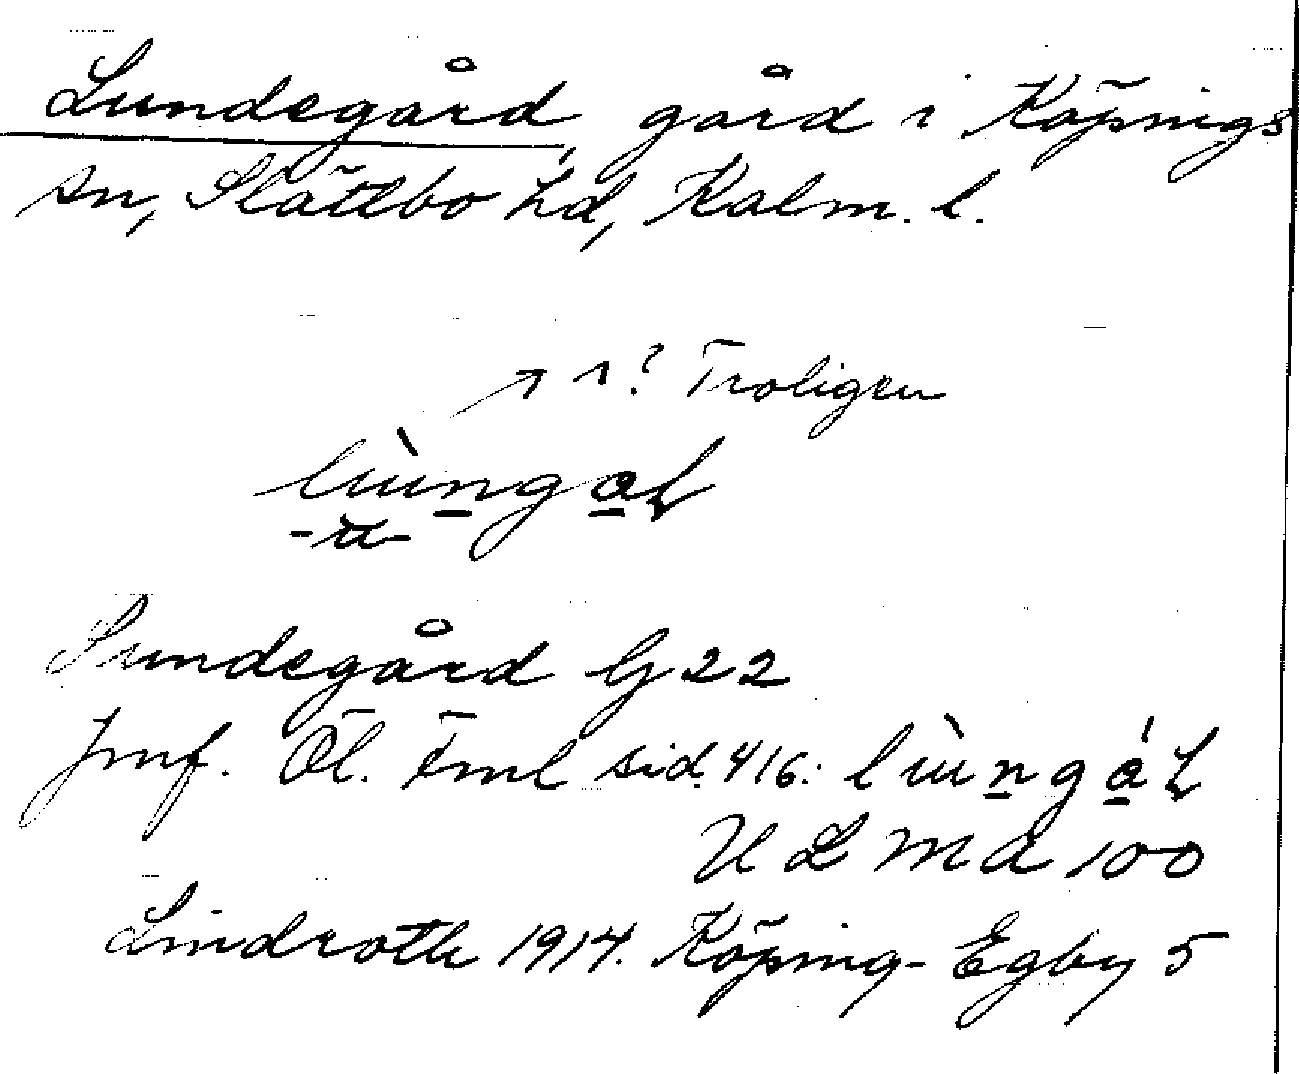 Lundegård, gård i Köpings
sn, Slättbo hd, Kalm. l.
? Troligen
lùngal
-u-
Lundegård G 22
Jmf. Öl. Fml sid. 416: lùngál
ULMA 100
Lindroth 1914. Köping-Egby 5